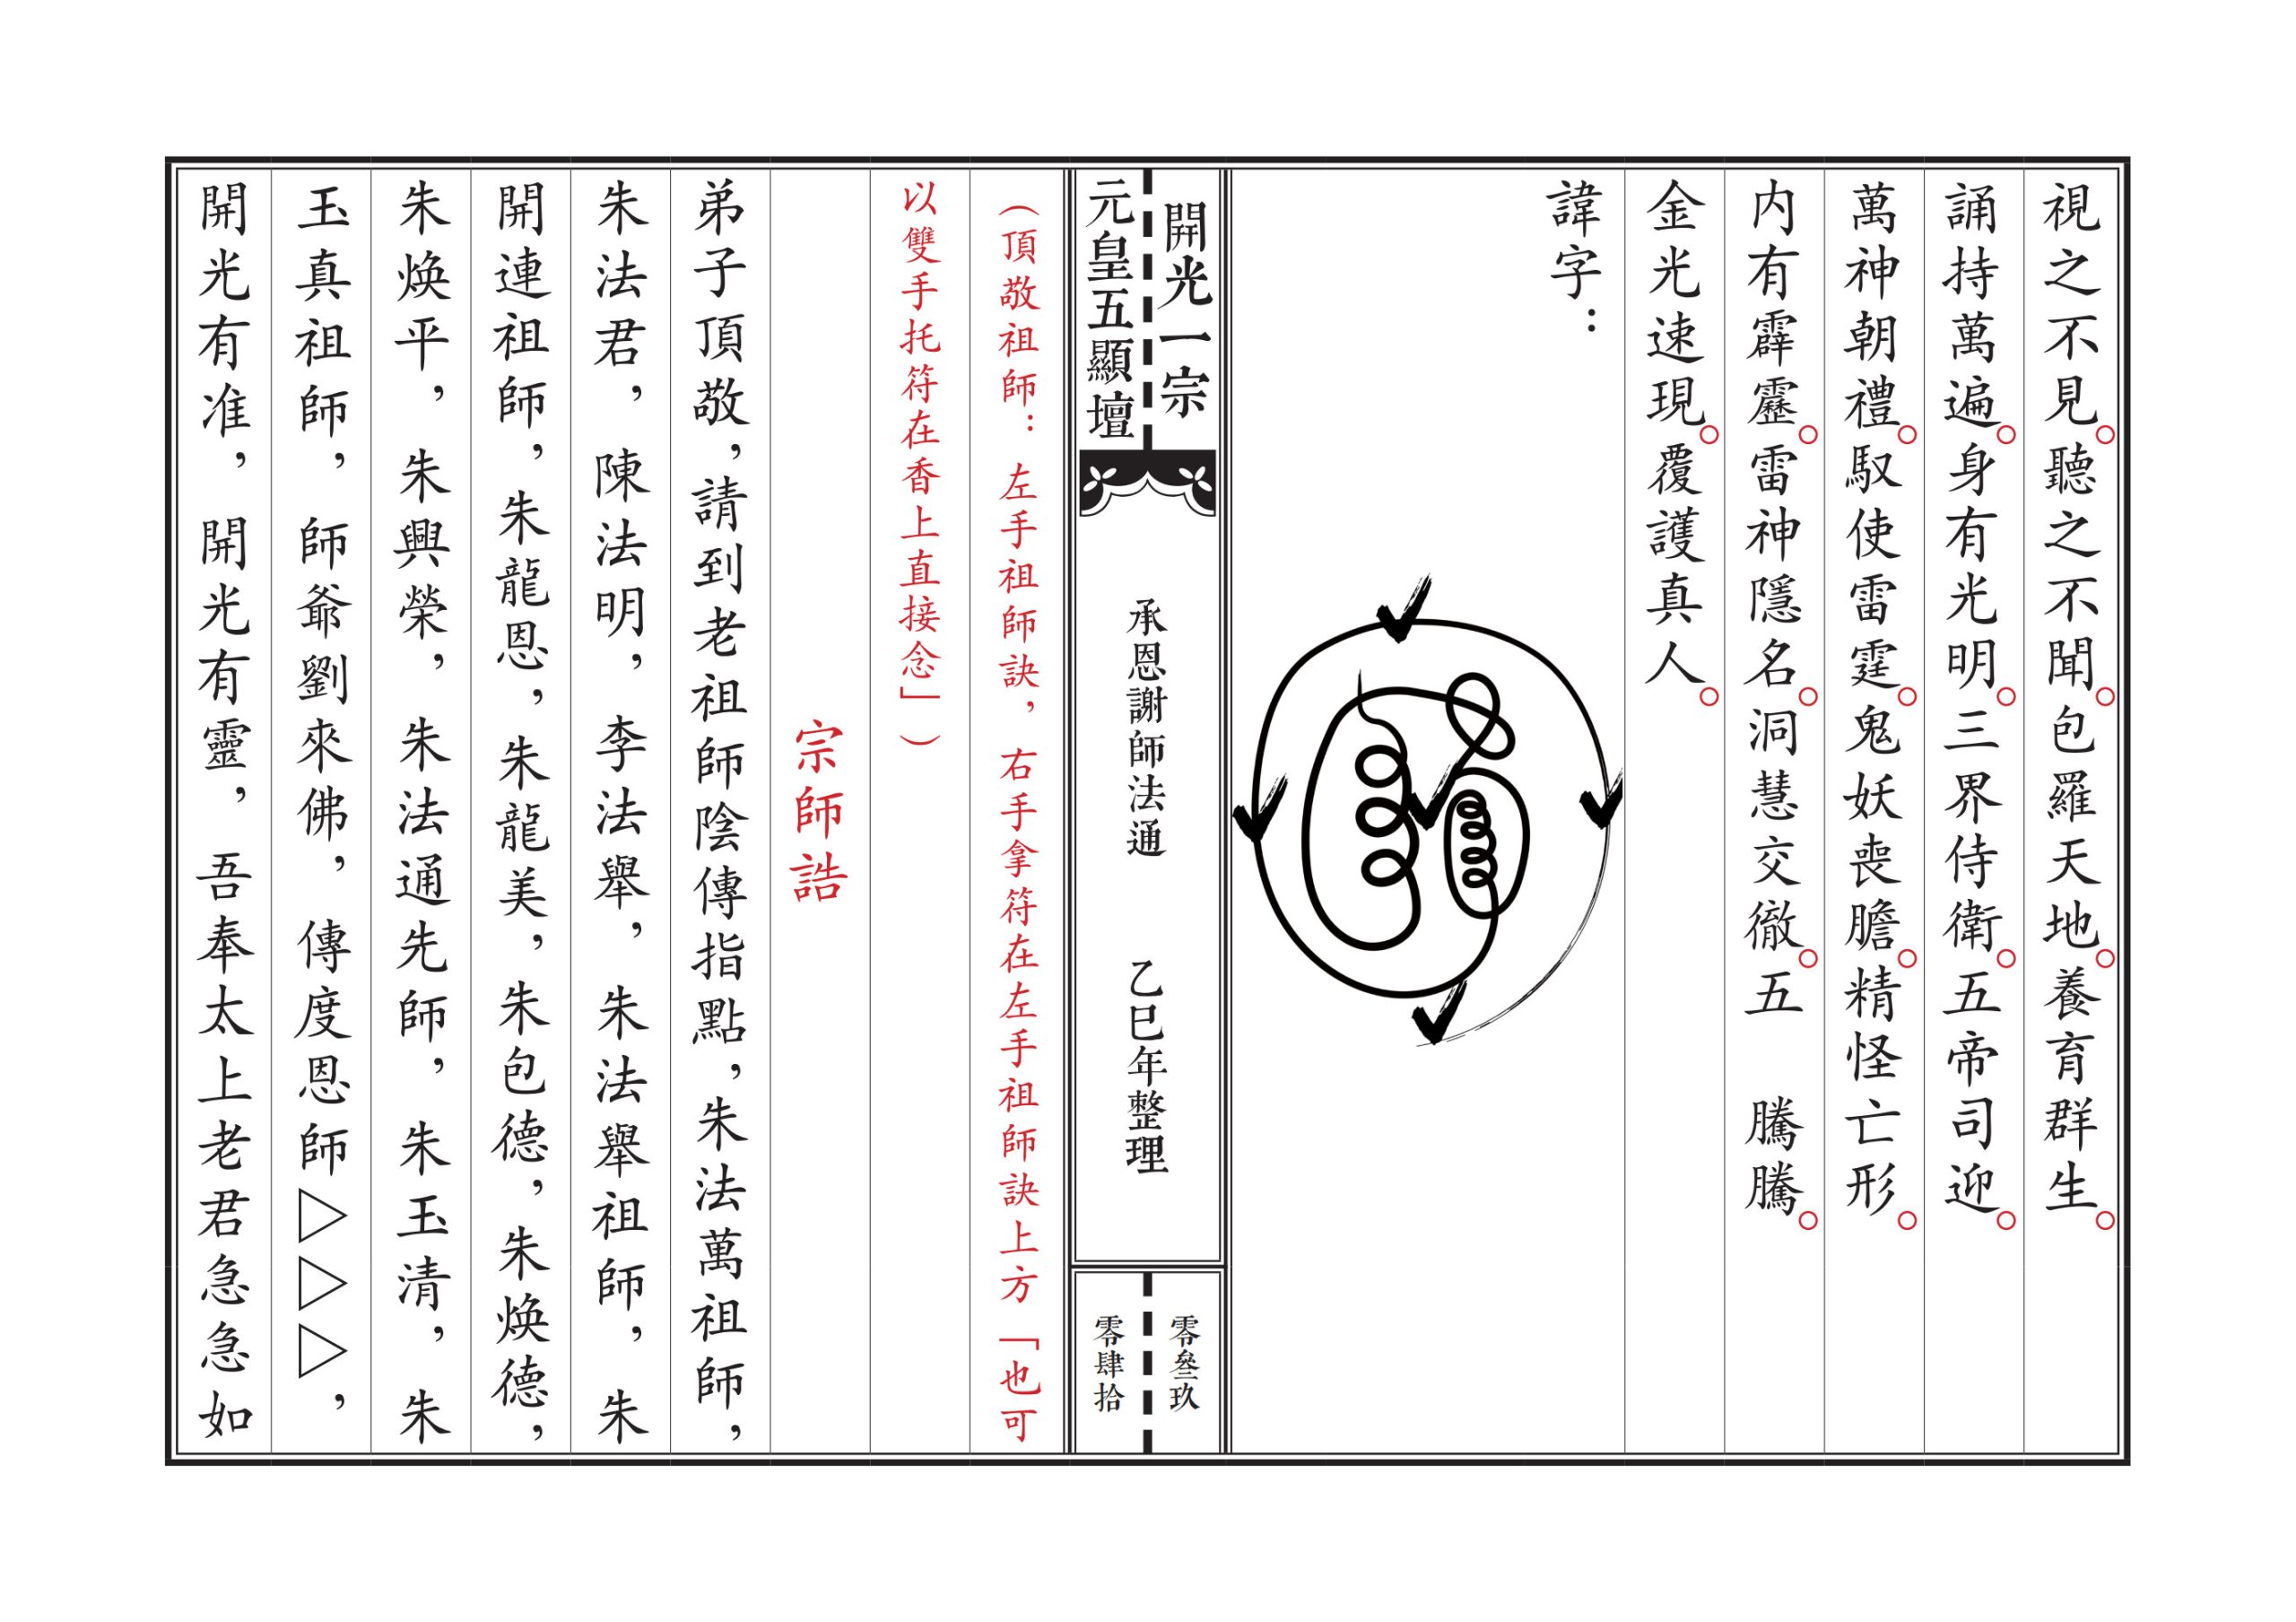 視之不見。聽之不聞。包羅天地。養育群生。
誦持萬遍。身有光明。三界侍衛。五帝司迎。
萬神朝禮。馭使雷霆。鬼妖喪膽。精怪亡形。
内有霹靂。雷神隱名。洞慧交徹。五　騰騰。
金光速現。覆護真人。
諱字：
開光一宗
元皇五顯壇
承恩謝師法通
乙巳年整理
零叄玖
零肆拾
（頂敬祖師：左手祖師訣，右手拿符在左手祖師訣上方「也可
以雙手托符在香上直接念」）
宗師誥
弟子頂敬，請到老祖師陰傳指點，朱法萬祖師，
朱法君，陳法明，李法舉，朱法舉祖師，朱
開連祖師，朱龍恩，朱龍美，朱包德，朱煥德，
朱煥平，朱興榮，朱法通先師，朱玉清，朱
玉真祖師，師爺劉來佛，傳度恩師▷▷▷，
開光有准，開光有靈，吾奉太上老君急急如